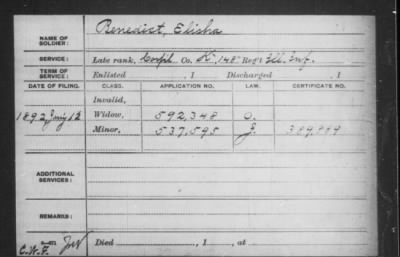 Benedict, Elisha
NAME OF SOLDIER:
SERVICE: Late rank, Corpl Co. K, 148" Reg't Ill. Inf.
TERM OF SERVICE: Enlisted , 1 Discharged , 1
DATE OF FILING. CLASS. APPLICATION NO. LAW. CERTIFICATE NO.
Invalid,
1892 12 Widow, 592,348 O.
Minor, 537,595 J. 389,989
ADDITIONAL SERVICES:
REMARKS:
Died , 1 , at